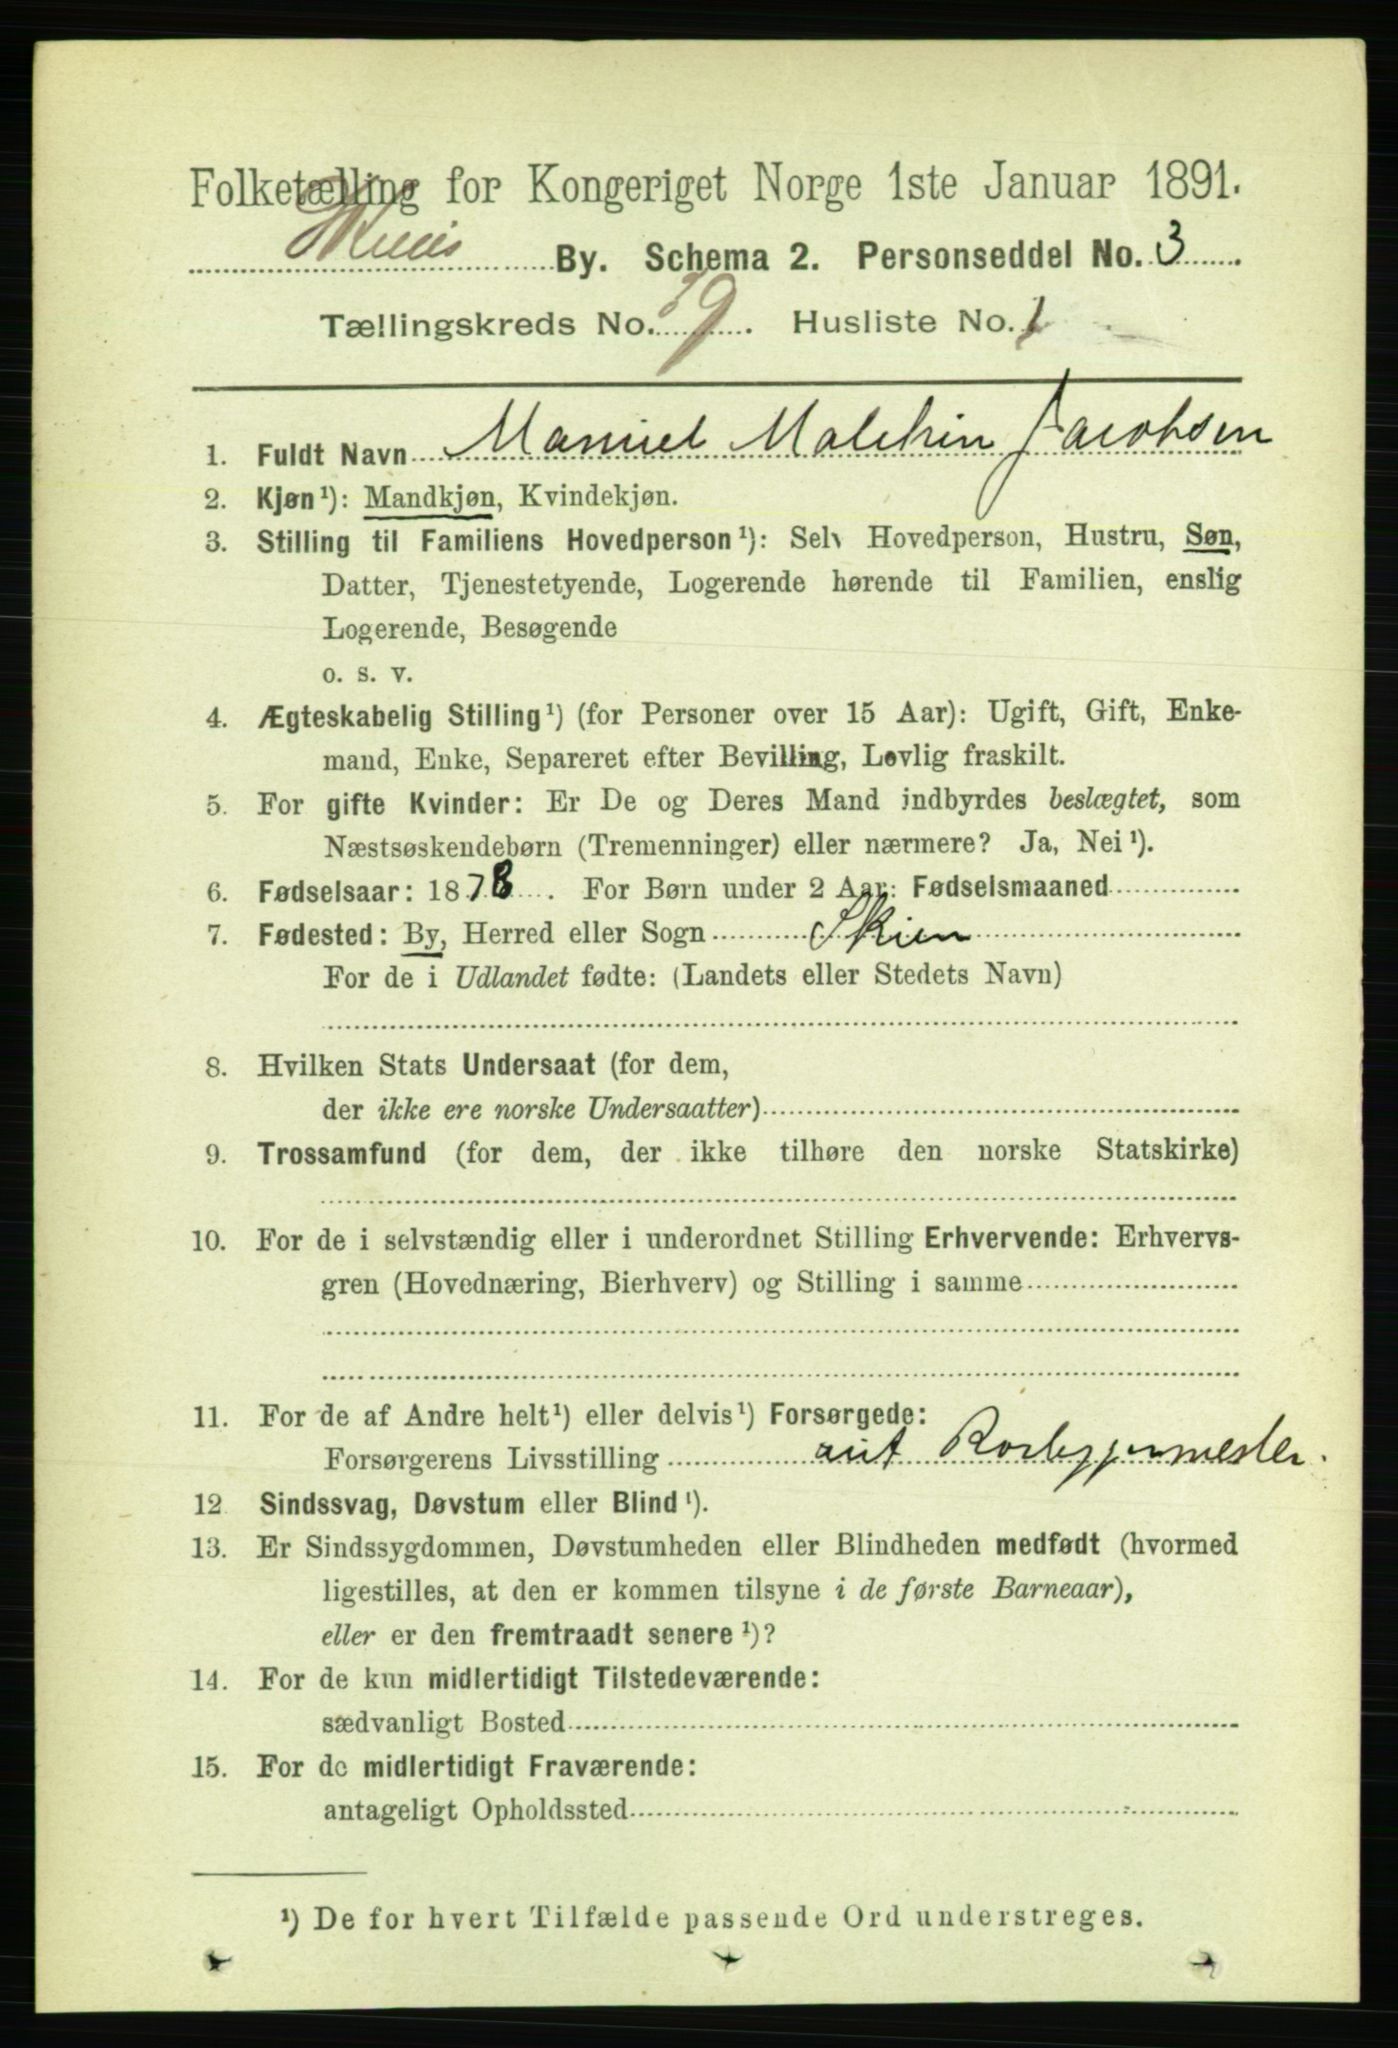 Folketælling for Kongeriget Norge 1ste Januar 1891.
Skiens By. Schema 2. Personseddel No. 3
Tællingskreds No. 9. Husliste No. 1
1. Fuldt Navn Manuel Jacobsen
2. Kjøn¹): Mandkjøn, Kvindekjøn.
3. Stilling til Familiens Hovedperson¹): Selv Hovedperson, Hustru, Søn,
Datter, Tjenestetyende, Logerende hørende til Familien, enslig
Logerende, Besøgende
o. s. v.
4. Ægteskabelig Stilling¹) (for Personer over 15 Aar): Ugift, Gift, Enke-
mand, Enke, Separeret efter Bevilling, Lovlig fraskilt.
5. For gifte Kvinder: Er De og Deres Mand indbyrdes beslægtet, som
Næstsøskendebørn (Tremenninger) eller nærmere? Ja, Nei¹).
6. Fødselsaar: 1878. For Børn under 2 Aar: Fødselsmaaned
7. Fødested: By, Herred eller Sogn Skien
For de i Udlandet fødte: (Landets eller Stedets Navn)
8. Hvilken Stats Undersaat (for dem,
der ikke ere norske Undersaatter)
9. Trossamfund (for dem, der ikke tilhøre den norske Statskirke)
10. For de i selvstændig eller i underordnet Stilling Erhvervende: Erhvervs-
gren (Hovednæring, Bierhverv) og Stilling i samme
11. For de af Andre helt¹) eller delvis¹) Forsørgede:
Forsørgerens Livsstilling
12 Sindssvag, Døvstum eller Blind¹).
13. Er Sindssygdommen, Døvstumheden eller Blindheden medfødt (hvormed
ligestilles, at den er kommen tilsyne i de første Barneaar),
eller er den fremtraadt senere¹)?
14. For de kun midlertidigt Tilstedeværende:
sædvanligt Bosted
15. For de midlertidigt Fraværende:
antageligt Opholdssted
¹) De for hvert Tilfælde passende Ord understreges.